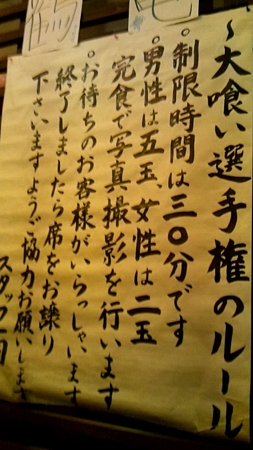 〜大喰い選手権のルール
。制限時間は三〇分です
。男性は五玉、女性は二玉
完食で写真撮影を行います
。お待ちのお客様がいらっしゃいます
終了しましたら席をお譲り
下さいますようご協力お願いします
スタッフ一同